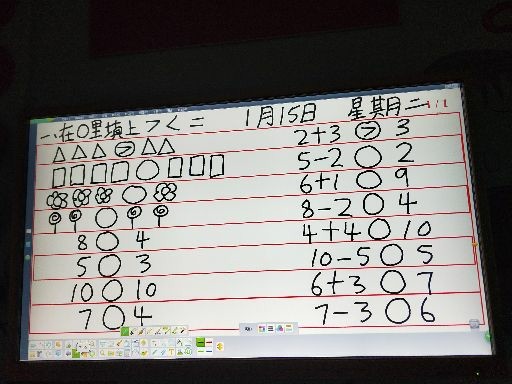 一.在○里填上＞＜＝ 1月15日 星期二
△△△＞△△ 2+3＞3
□□□□○□□□ 5-2○2
○ 6+1○9
○ 8-2○4
8○4 4+4○10
5○3 10-5○5
10○10 6+3○7
7○4 7-3○6